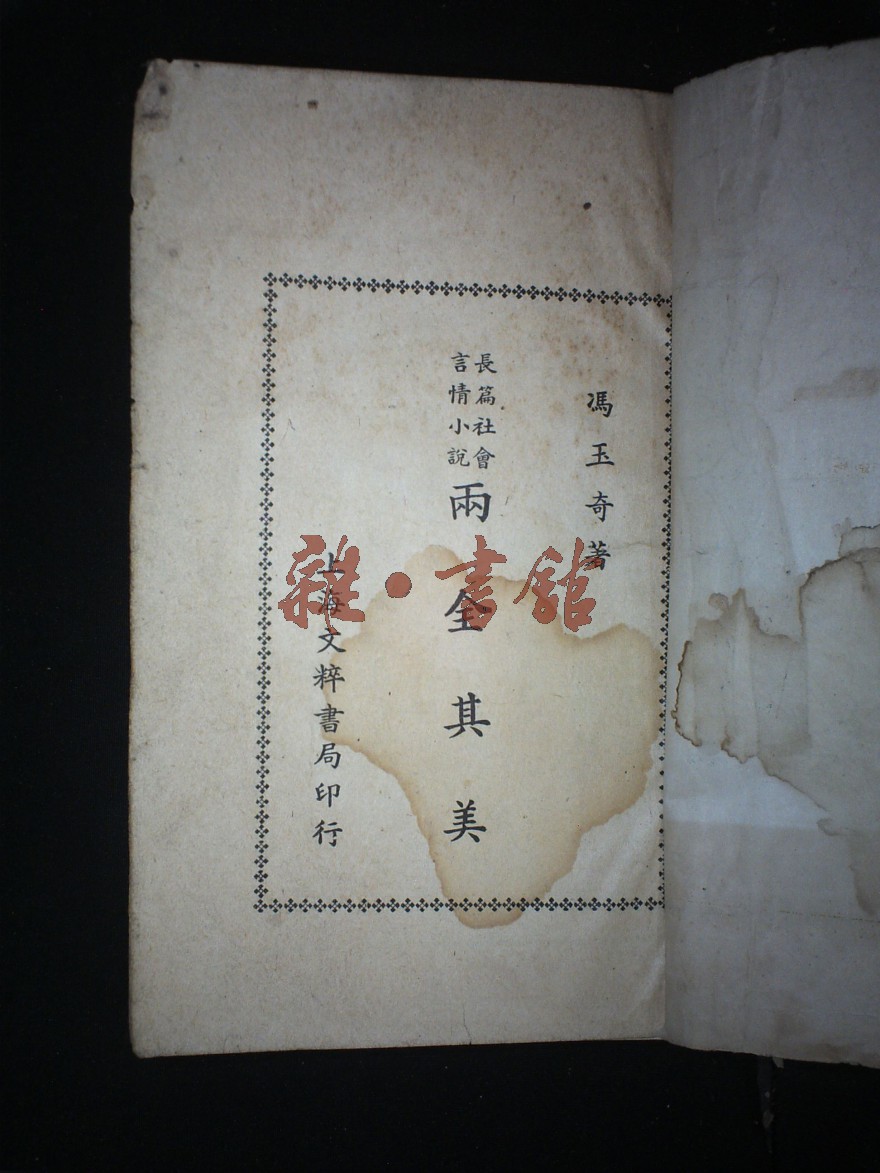 馮玉奇著
長篇社會
言情小說
兩全其美
上海文粹書局印行
雜·書館